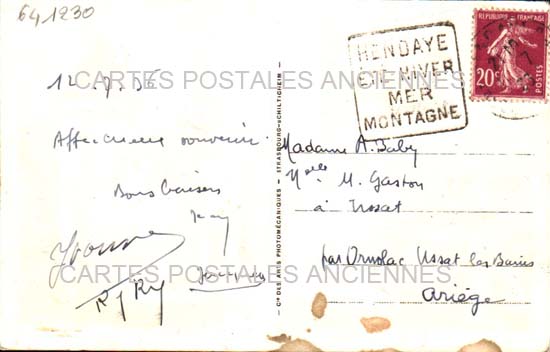 641230
HENDAYE
ETE-HIVER
MER
MONTAGNE
REPUBLIQUE FRANÇAISE
20c
POSTES
CARTES POSTALES ANCIENNES
Affectueux souvenir
Bons baisers
Yvonne
Cie DES ARTS PHOTOMÉCANIQUES - STRASBOURG-SCHILTIGHEIM
Madame A. Baby
M. Gaston
à Ussat
par Ornolac Ussat les Bains
Ariège
CARTES POSTALES ANCIENNES